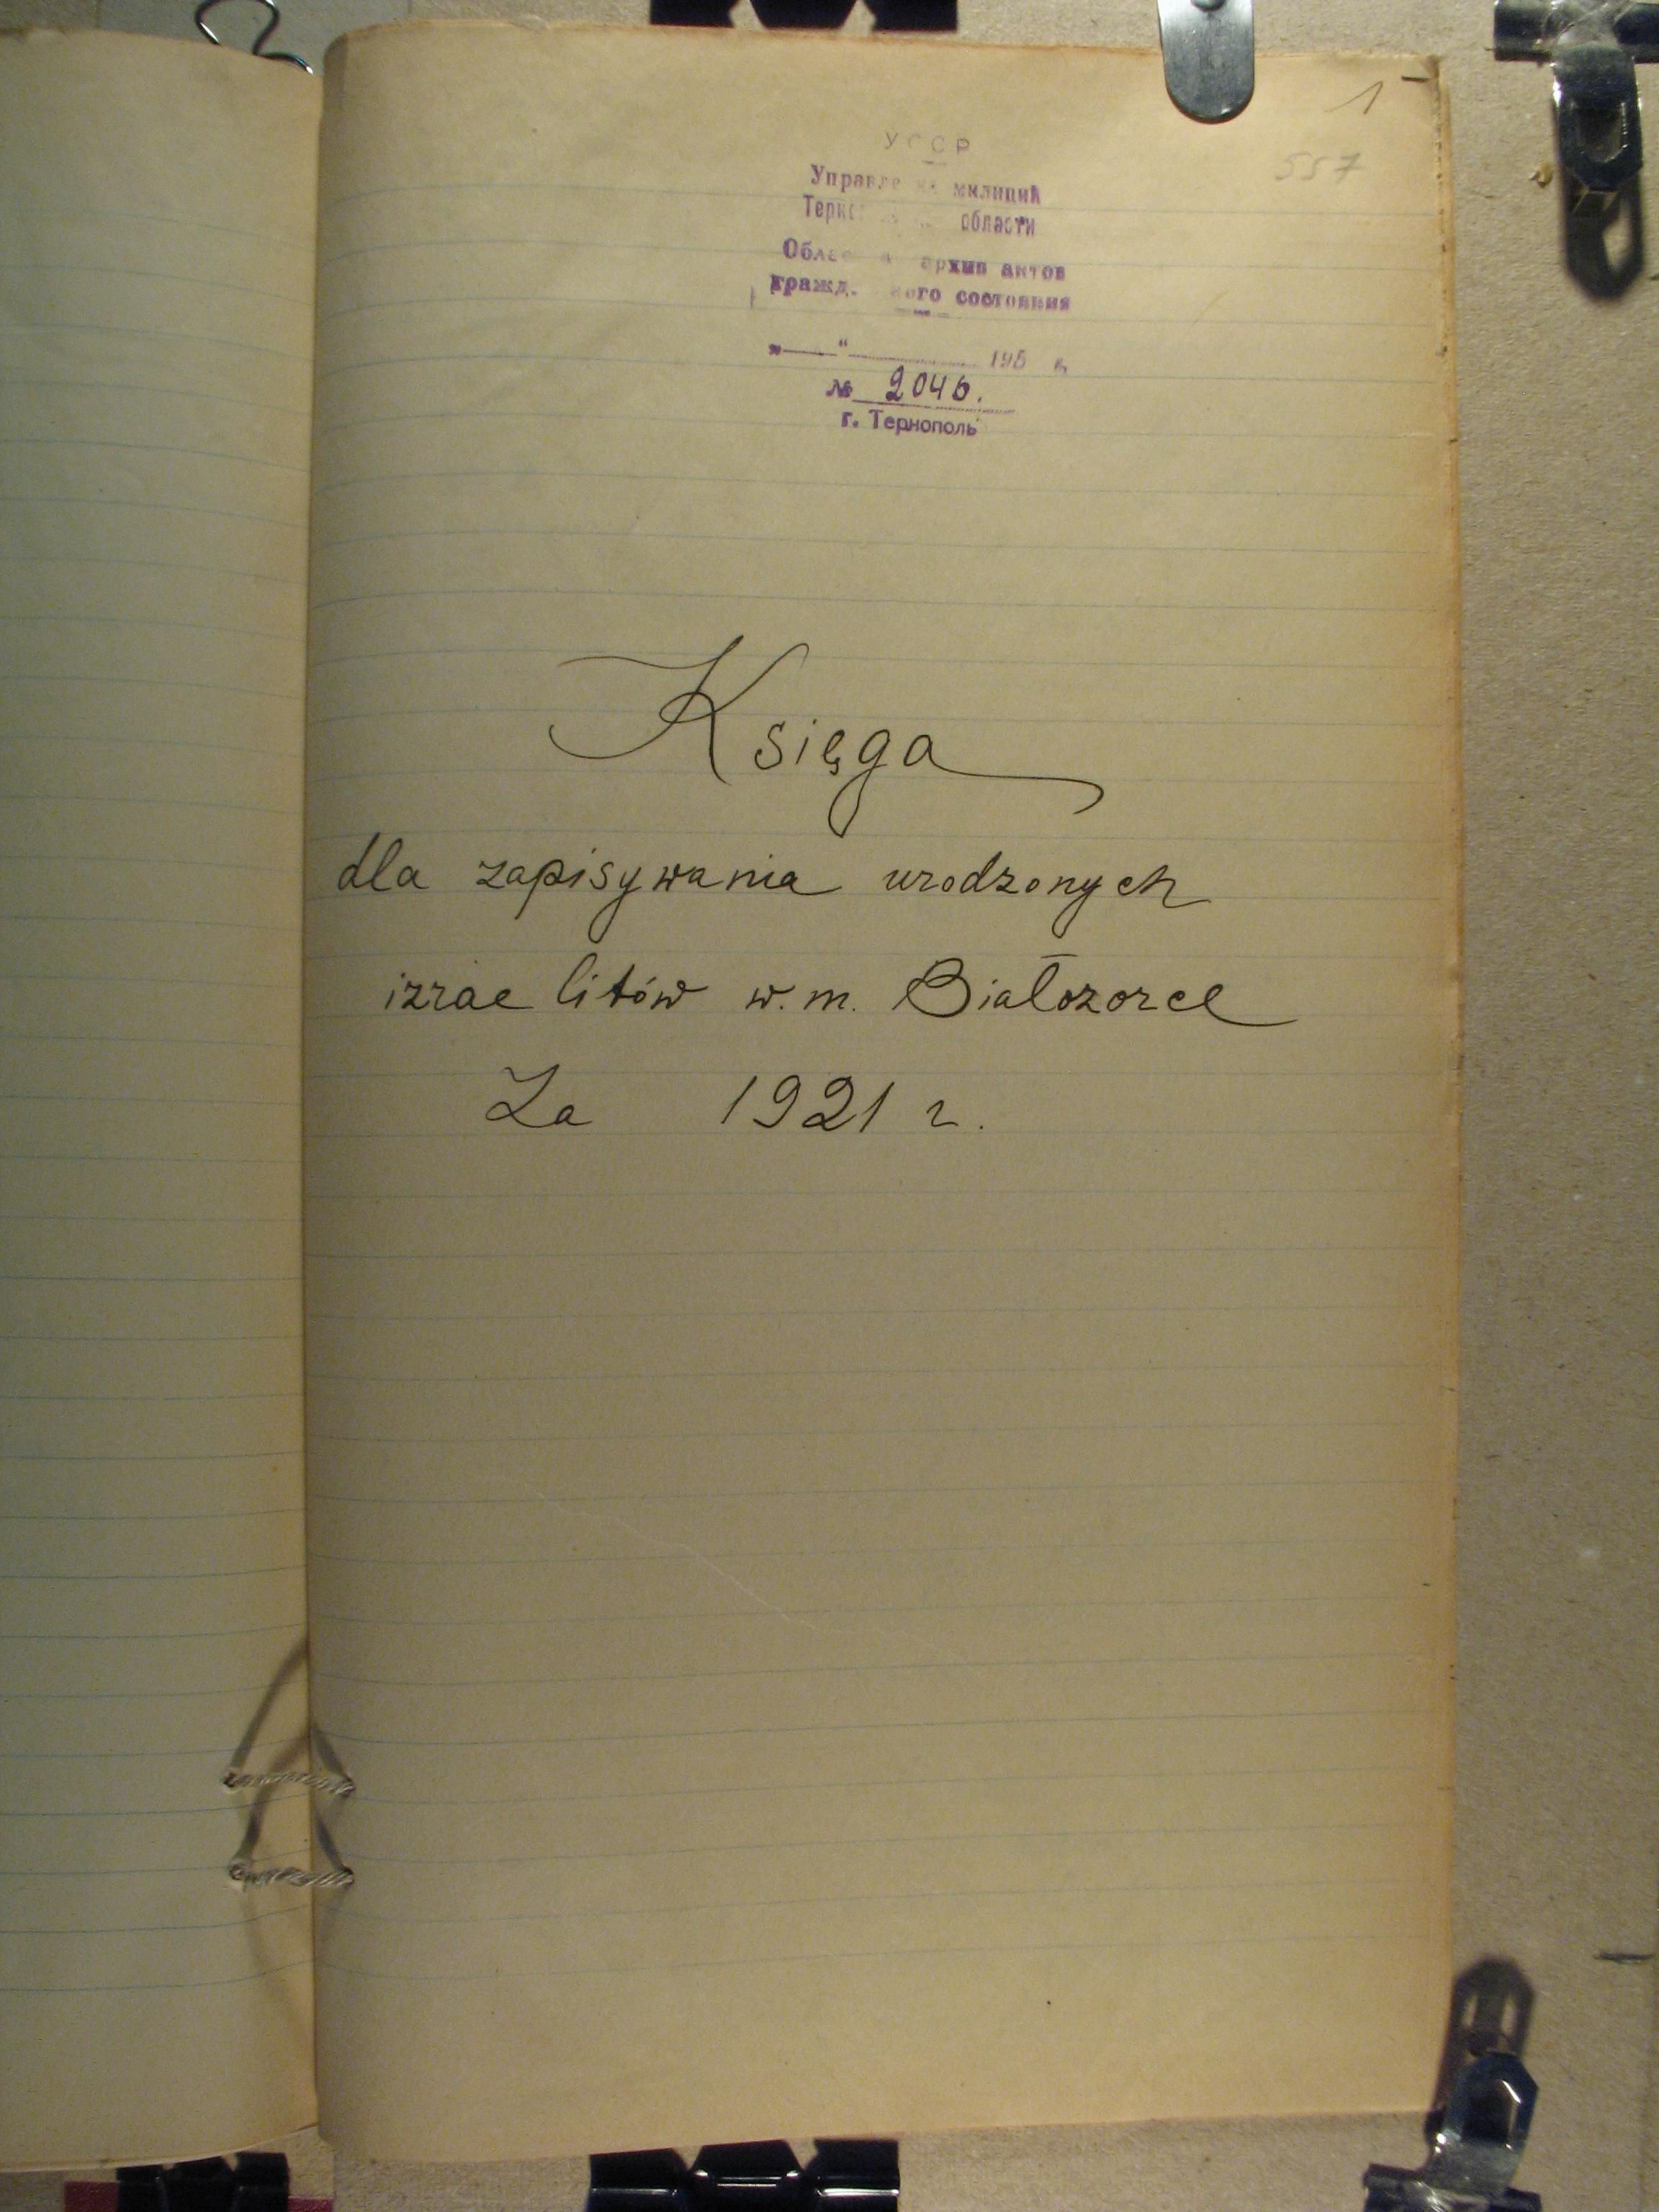 1
557
УССР
милиции
области
архив актов
состояния
"—" 195 г.
№ 2046.
г. Тернополь
Księga
dla zapisywania urodzonych
izraelitów w.m. Białozorce
Za 1921 r.